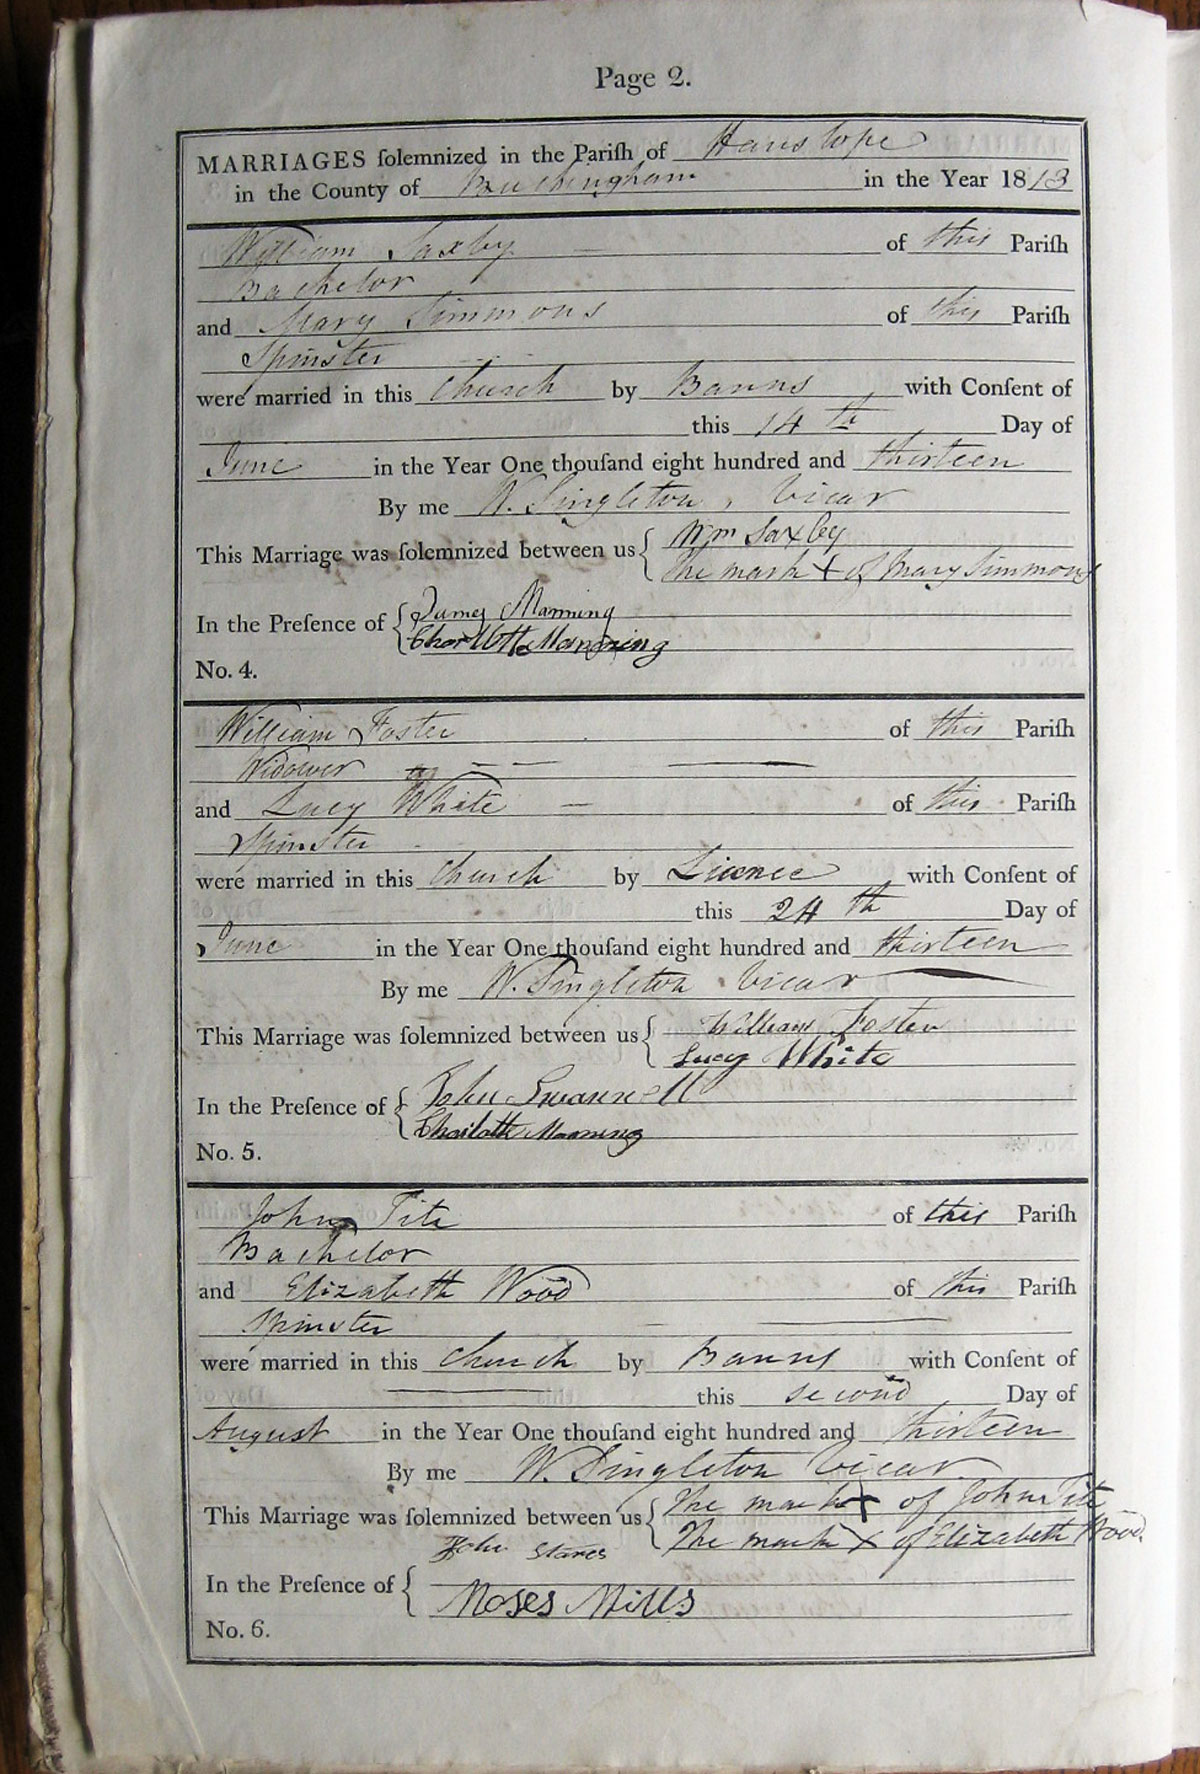 Page 2.
MARRIAGES ſolemnized in the Pariſh of Hanslope
in the County of Buckingham in the Year 1813
William Saxby — of this Pariſh
Bachelor
and Mary Simmons of this Pariſh
Spinster
were married in this Church by Banns with Conſent of
this 14th Day of
June in the Year One thouſand eight hundred and thirteen
By me W. Singleton, Vicar
This Marriage was ſolemnized between us { Wm Saxby
The mark X of Mary Simmons
In the Preſence of { James Manning
Charlotte Manning
No. 4.
William Foster of this Pariſh
Widower — — —
and Lucy White — of this Pariſh
Spinster
were married in this Church by Licence with Conſent of
this 24th Day of
June in the Year One thouſand eight hundred and thirteen
By me W. Singleton Vicar
This Marriage was ſolemnized between us { William Foster
Lucy White
In the Preſence of { John Swannell
Charlotte Manning
No. 5.
John Tite of this Pariſh
Bachelor
and Elizabeth Wood of this Pariſh
Spinster
were married in this Church by Banns with Conſent of
this second Day of
August in the Year One thouſand eight hundred and thirteen
By me W. Singleton Vicar
This Marriage was ſolemnized between us { The mark X of John Tite
The mark X of Elizabeth Wood
John
In the Preſence of { Moses Mills
No. 6.